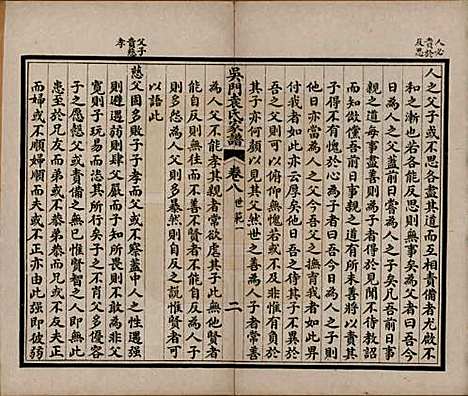 人必
貴於
反思
人之父子或不思各盡其道而互相責備者尤啟不
和之漸也若各能反思則無事矣為父者曰吾今
日為人之父蓋前日嘗為人之子矣凡吾前日事
親之道每事盡善則為子者得於見聞不待教詔
而知倣儻吾前日事親之道有所未善將以責其
子得不有愧於心為子者曰吾今日為人之子則
他日亦當為人之父今吾父之撫育我者如此畀
付我者如此亦云厚矣他日吾之待其子不異於
吾之父則可以俯仰無愧若或不及非惟有負於
其子亦何顏以見其父然世之善為人子者常善
吳門袁氏家譜 卷八 世範一 二
為人父不能孝其親者常欲虐其子此無他賢者
能自反則無往而不善不賢者不能自反為人子
則多怨為人父則多暴然則自反之說惟賢者可
以語此
父子
貴慈
孝
慈父固多敗子子孝而父或不察蓋中人之性遇強
則避遇弱則肆父嚴而子知所畏則不敢為非父
寬則子玩易而恣其所行矣子之不肖父多優容
子之愿愨父或責備之無已惟賢智之人即無此
患至於兄友而弟或不恭弟恭而兄或不友夫正
而婦或不順婦順而夫或不正亦由此強即彼弱